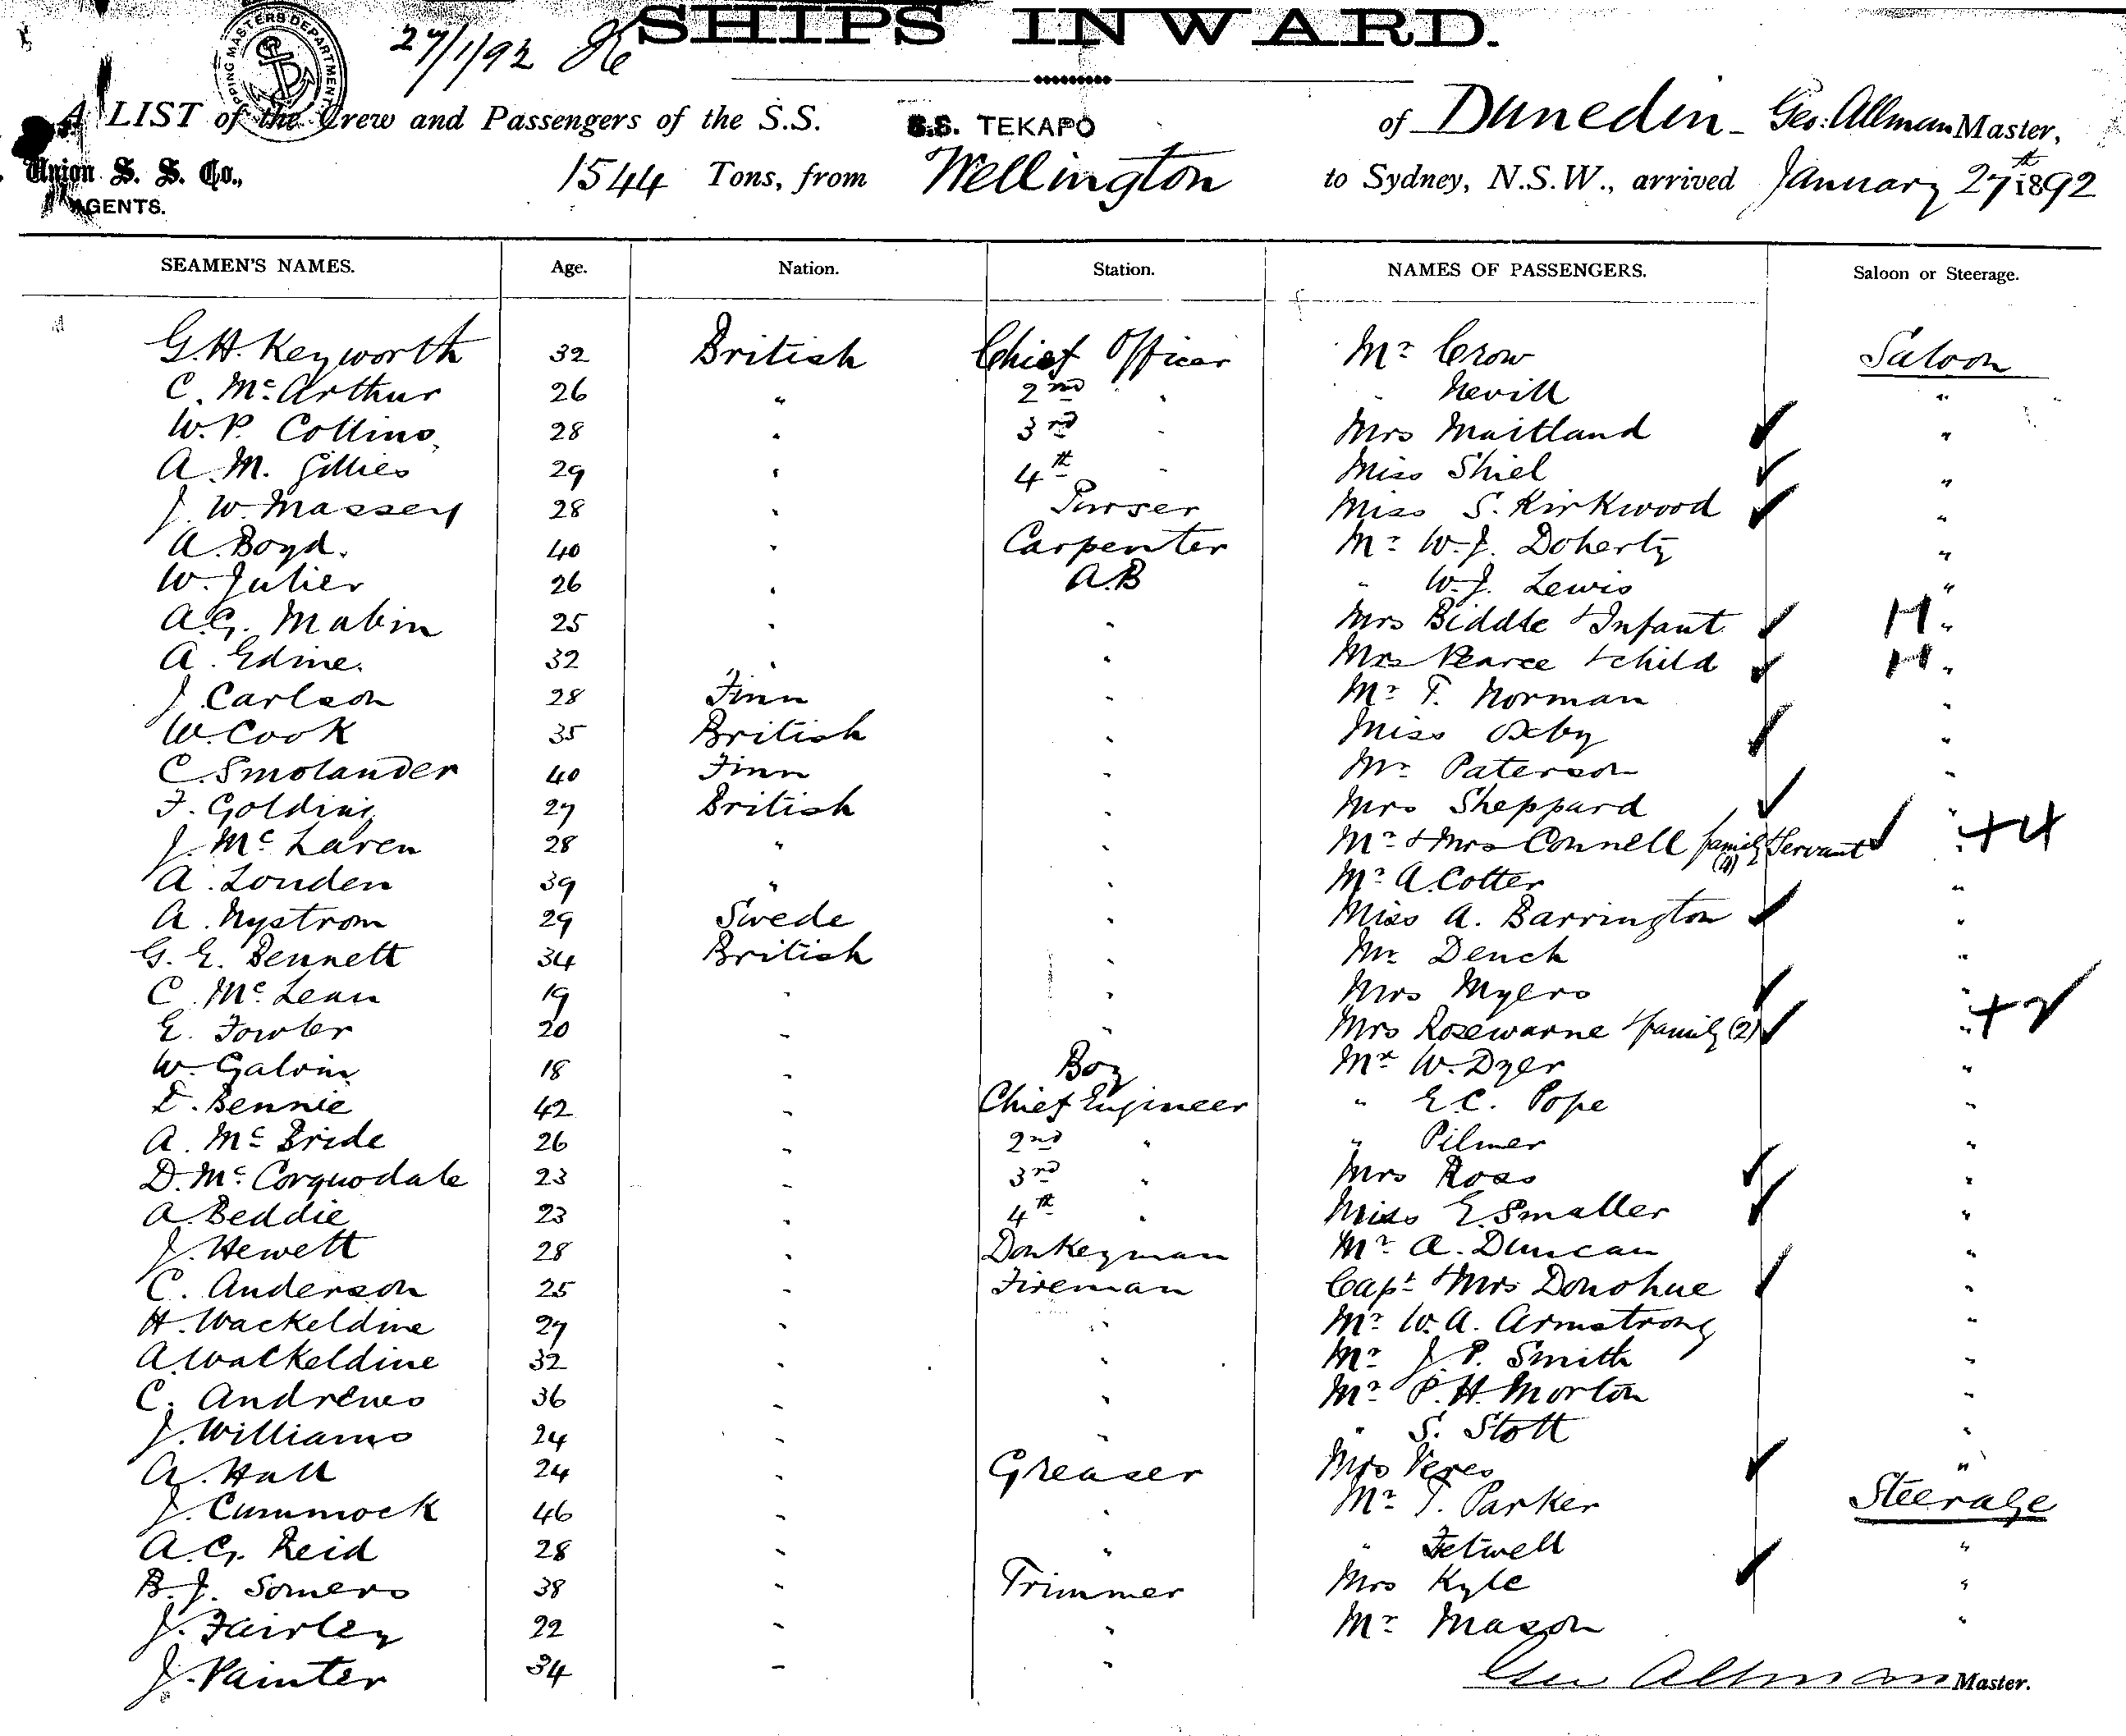 SHIPS INWARD.
SHIPPING MASTERS DEPARTMENT.
27/1/92
A LIST of the Crew and Passengers of the S.S. S.S. TEKAPO of Dunedin Geo: Allman Master,
Union S. S. Co., AGENTS.
1544 Tons, from Wellington to Sydney, N.S.W., arrived January 27th 1892
SEAMEN'S NAMES. Age. Nation. Station. NAMES OF PASSENGERS. Saloon or Steerage.
G. H. Keyworth 32 British Chief Officer Mr Crow Saloon
C. McArthur 26 " 2nd " " Nevill "
W. P. Collins 28 " 3rd " Mrs Maitland ✓ "
A. M. Gillies 29 " 4th " Miss Shiel ✓ "
J. W. Massey 28 " Purser Miss S. Kirkwood ✓ "
A. Boyd. 40 " Carpenter Mr W. J. Doherty "
W. Julier 26 " A.B " W. J. Lewis "
A. G. Mabin 25 " " Mrs Biddle + Infant ✓ H "
A. Edine. 32 " " Mrs Pearce + child ✓ H "
J. Carlson 28 Finn " Mr T. Norman "
W. Cook 35 British " Miss Oxby ✓ "
C. Smolander 40 Finn " Mr Paterson "
F. Golding 27 British " Mrs Sheppard ✓ "
J. McLaren 28 " " Mr + Mrs Connell family (4) + Servant ✓ " +4
A. Louden 39 " " Mr A. Cotter "
A. Nystrom 29 Swede " Miss A. Barrington ✓ "
G. E. Bennett 34 British " Mr Dench "
C. McLean 19 " " Mrs Myers ✓ "
E. Fowler 20 " " Mrs Rosewarne + family (2) ✓ " +2
W. Galvin 18 " Boy Mr W. Dyer "
D. Bennie 42 " Chief Engineer " E. C. Pope "
A. McBride 26 " 2nd " " Pilmer "
D. McCorquodale 23 " 3rd " Mrs Ross ✓ "
A. Beddie 23 " 4th " Miss E. Smaller ✓ "
J. Hewett 28 " Donkeyman Mr A. Duncan "
C. Anderson 25 " Fireman Capt + Mrs Donohue ✓ "
H. Wackeldine 27 " " Mr W. A. Armstrong "
A. Wackeldine 32 " " Mr J. P. Smith "
C. Andrews 36 " " Mr P. H. Morton "
J. Williams 24 " " " S. Stott "
A. Hall 24 " Greaser Mrs Veres ✓ "
J. Cummock 46 " " Mr T. Parker Steerage
A. G. Reid 28 " " " Fetwell "
B. J. Somers 38 " Trimmer Mrs Kyle ✓ "
J. Fairley 22 " " Mr Mason "
J. Painter 34 " "
Geo Allman Master.